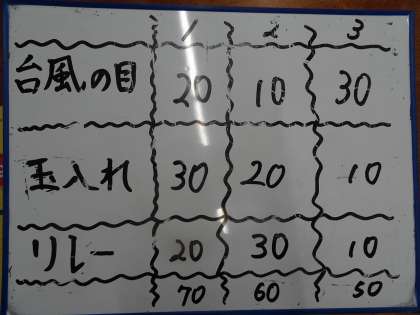 1 2 3
台風の目 20 10 30
玉入れ 30 20 10
リレー 20 30 10
70 60 50